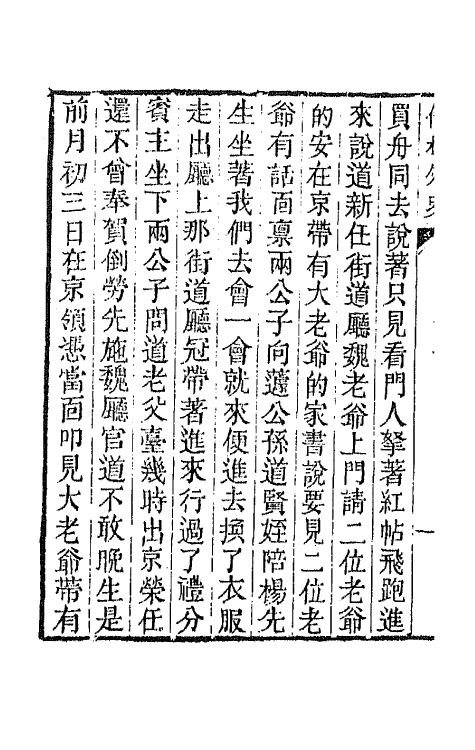 儒林外史
一
買舟同去說著只見看門人拏著紅帖飛跑進
來說道新任街道廳魏老爺上門請二位老爺
的安在京帶有大老爺的家書說要見二位老
爺有話面稟兩公子向蘧公孫道賢姪陪楊先
生坐著我們去會一會就來便進去換了衣服
走出廳上那街道廳冠帶著進來行過了禮分
賓主坐下兩公子問道老父臺幾時出京榮任
還不曾奉賀倒勞先施魏廳官道不敢晚生是
前月初三日在京領憑當面叩見大老爺帶有